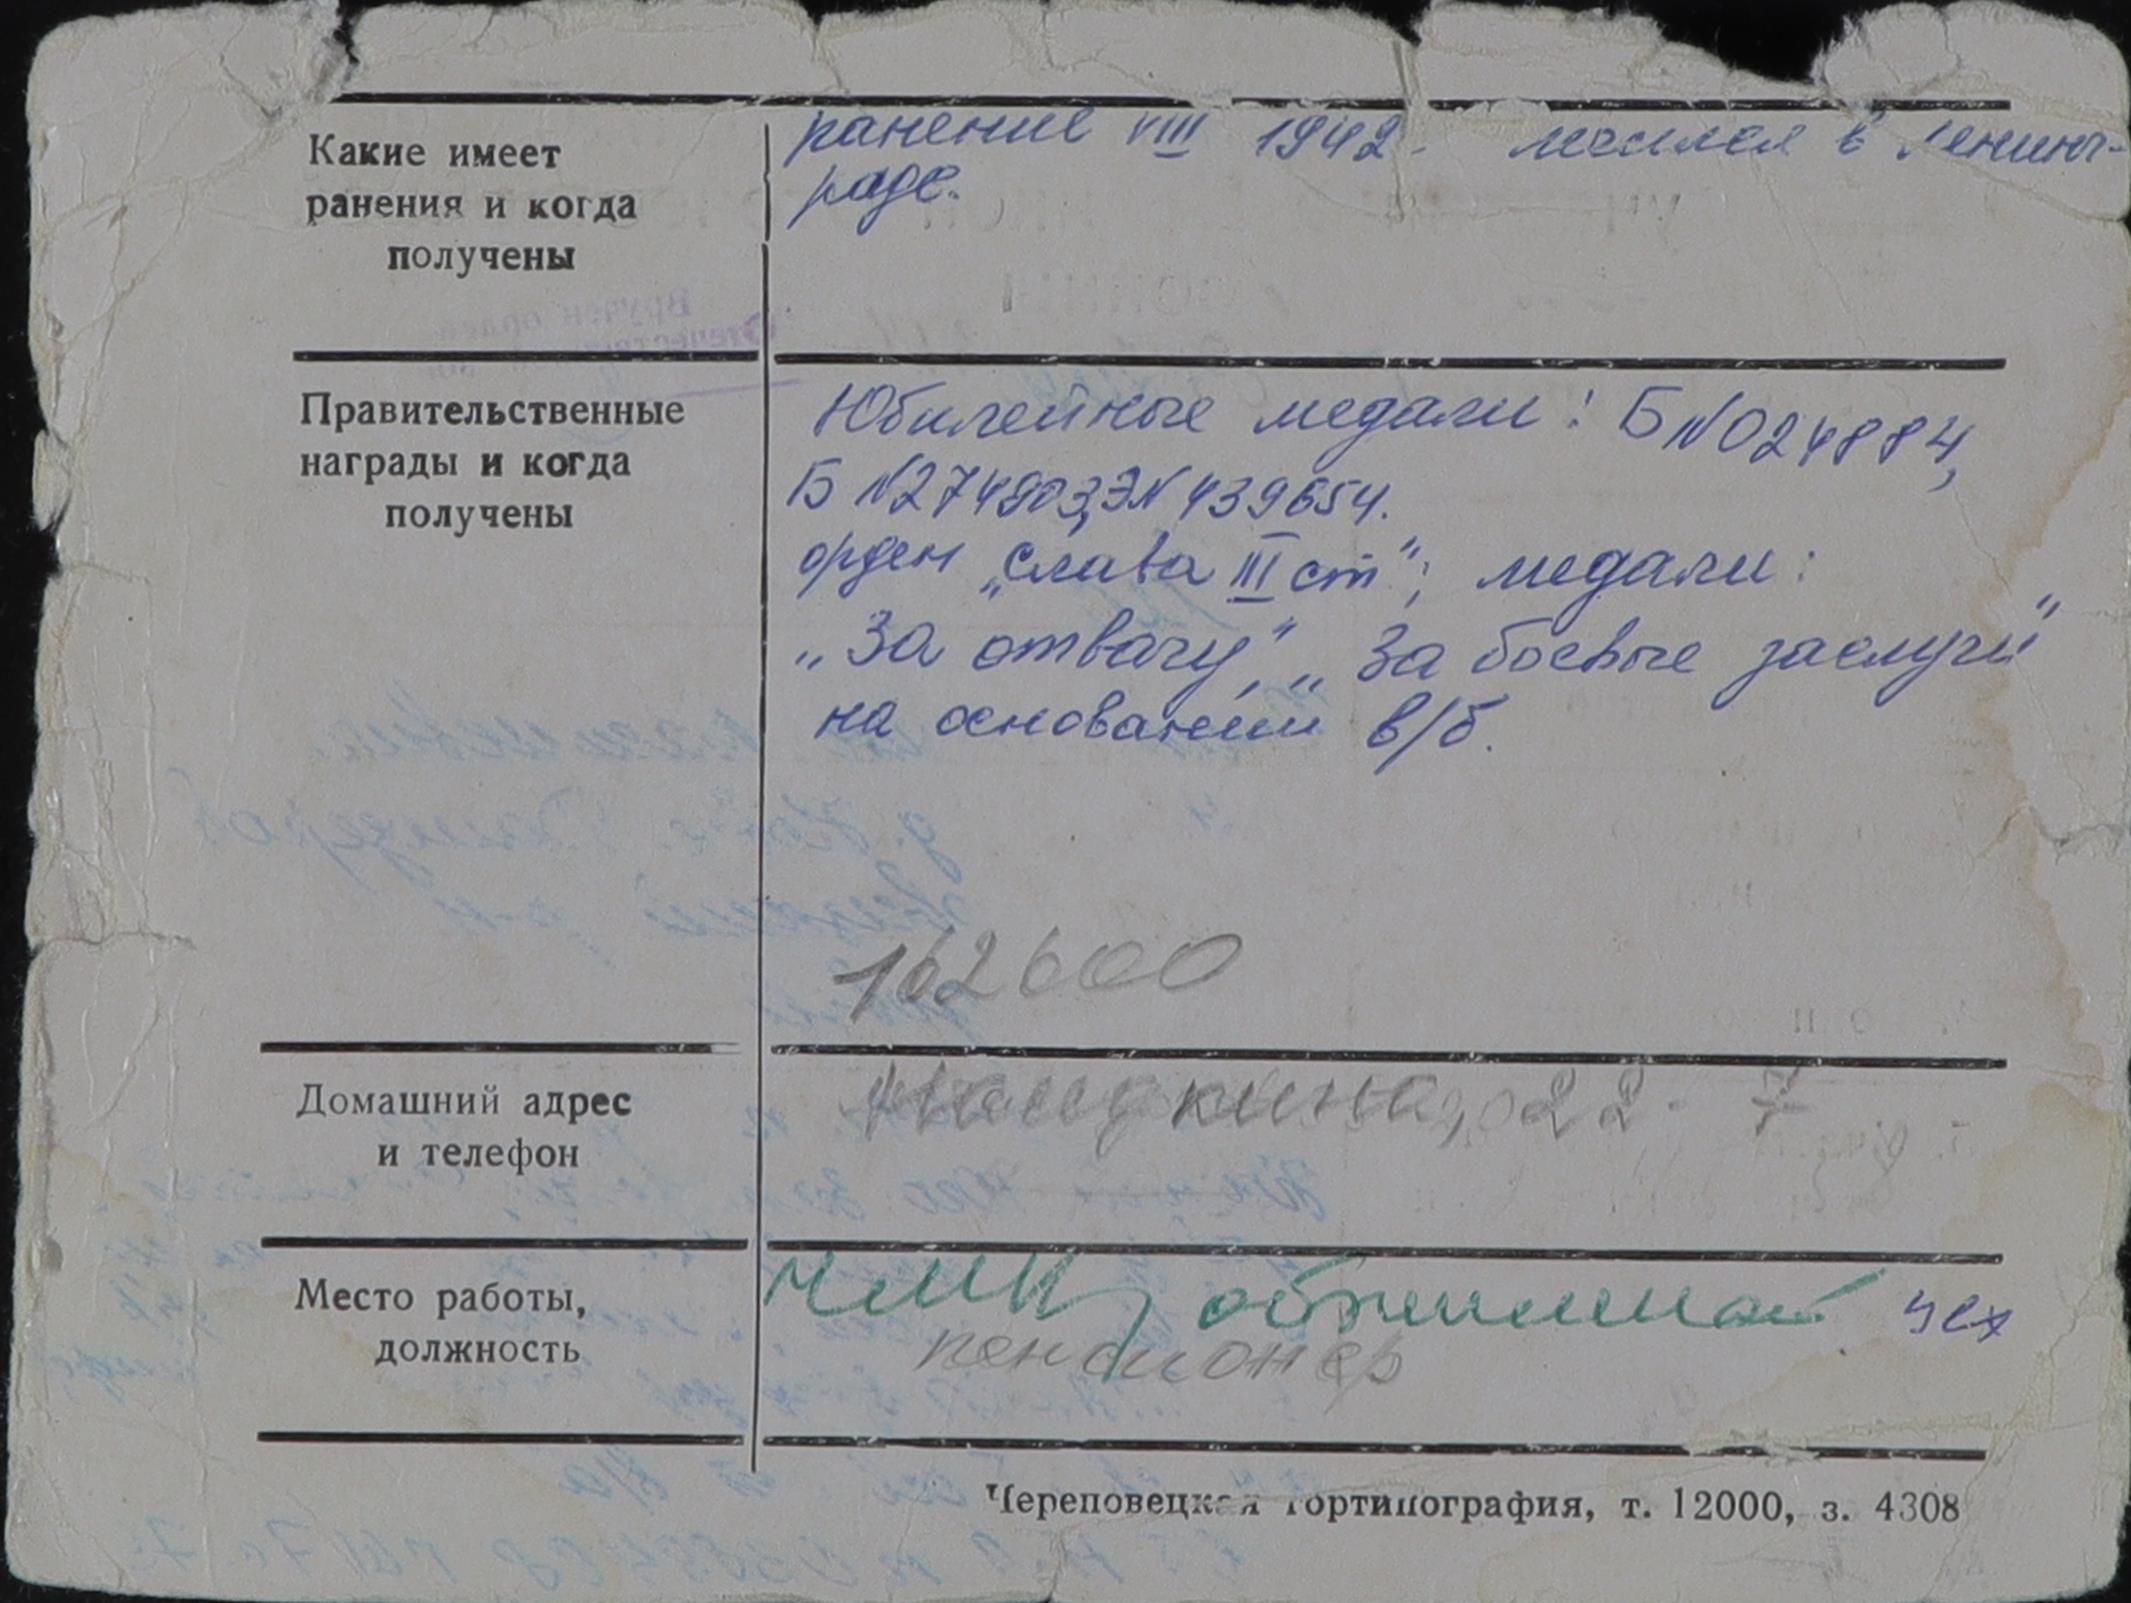 Какие имеет
ранения и когда
получены
ранение VIII 1942. лечился в Ленинг-
раде.
Правительственные
награды и когда
получены
Юбилейные медали: Б№024884,
Б №274803, Э№439654.
орден „слава III ст"; медали:
„За отвагу", „За боевые заслуги"
на основании в/б.
162600
Домашний адрес
и телефон
22-7
Место работы,
должность
ЧМК, обжимной цех
пенсионер
Череповецкая гортипография, т. 12000, з. 4308